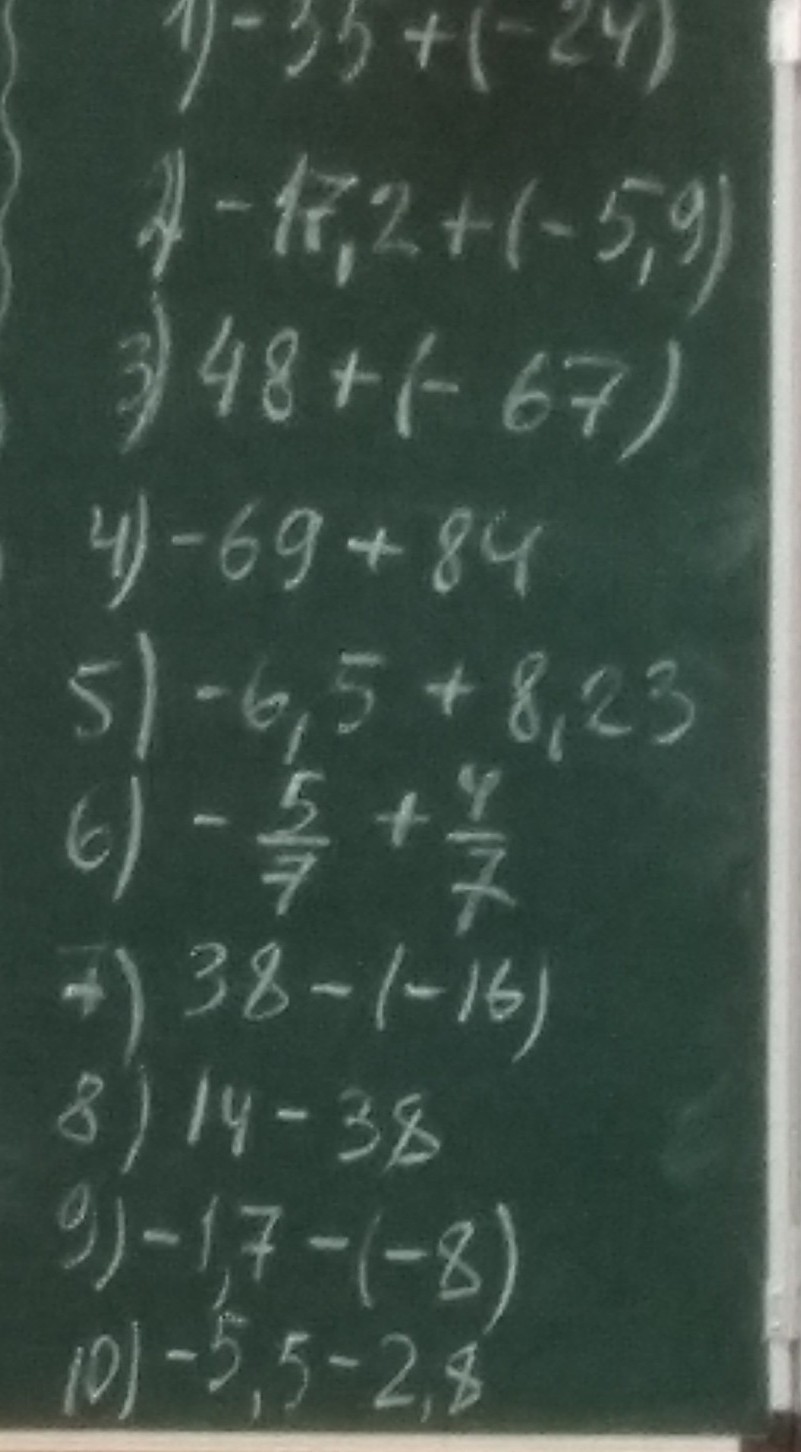 1) -35 + (-24)
2) -17,2 + (-5,9)
3) 48 + (- 67)
4) -69 + 84
5) -6,5 + 8,23
6) - 5/7 + 4/7
7) 38 - (-16)
8) 14 - 38
9) -1,7 - (-8)
10) -5,5 - 2,8